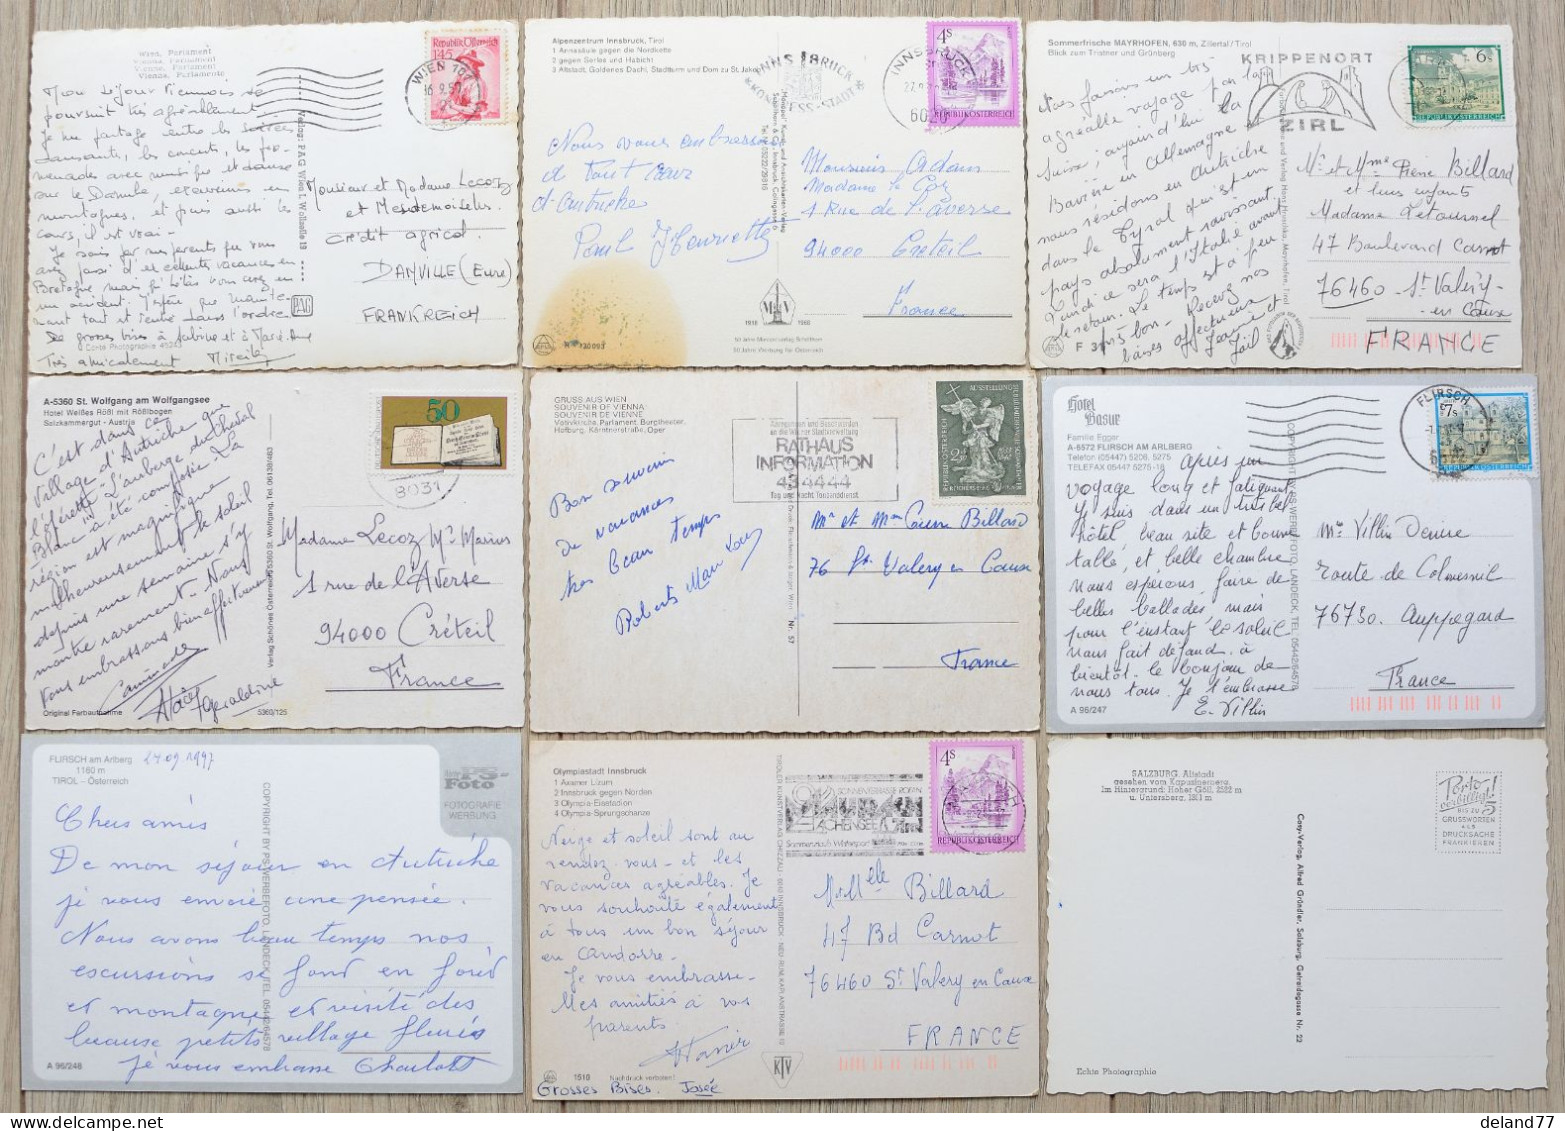 Wien, Parlament
Vienna, Parliament
Vienne, Parlement
Vienna, Parlamento
Mon séjour viennois se
poursuit très agréablement.
Je me partage entre les soirées
dansantes, les concerts, les pro-
menades avec
sur le Danube, excursions en
montagnes, et puis aussi les
cours, il est vrai -
Je sais par mes parents que vous
avez passé d'excellentes vacances en
Bretagne mais qu'hélas vous avez eu
un accident. J'espère que mainte-
nant tout est rentré dans l'ordre.
de grosses bises à Sabine et à Marie-Anne
Très amicalement Mireille
Echte Photographie
Verlag: PAG Wien I, Wollzeile 19
PAG
Republik Österreich
1·45
WIEN 101
16.9.57
Monsieur et Madame Lecoz
et Mesdemoiselles
Crédit agricol.
DANVILLE (Eure)
FRANKREICH
Alpenzentrum Innsbruck, Tirol
1 Annasäule gegen die Nordkette
2 gegen Serles und Habicht
3 Altstadt, Goldenes Dachl, Stadtturm und Dom zu St. Jakob
INNSBRUCK
KONGRESS-STADT
INNSBRUCK
6020
4s
REPUBLIK ÖSTERREICH
Nous vous embrassons
de tout cœur
d'Autriche
Paul Henriette
M V
1918 1968
50 Jahre Werbung für Österreich
Messieurs Adam
Madame Le Coz
1 Rue de l'Averse
94000 Créteil
France
Sommerfrische MAYRHOFEN, 630 m, Zillertal/Tirol
Blick zum Tristner und Grünberg
KRIPPENORT
ZIRL
6s
REPUBLIK ÖSTERREICH
Nous faisons un très
agréable voyage par la
Suisse, aujourd'hui la
Bavière en Allemagne
nous résidons en Autriche
dans le Tyrol qui est un
pays absolument ravissant.
Lundi ce sera l'Italie avant
le retour. Le temps est à peu
près bon. Recevez nos
baisers affectueux
Jeanne et
Joël
Mr et Mme Pierre Billard
et leurs enfants
Madame Letournel
47 Boulevard Carnot
76460 - St Valéry-
en Caux
FRANCE
A-5360 St. Wolfgang am Wolfgangsee
Hotel Weißes Rößl mit Rößlbogen
Salzkammergut - Austria
C'est dans ce
village d'Autriche que
l'opérette "L'auberge du Cheval
Blanc" a été composée. La
région est magnifique
malheureusement le soleil
depuis une semaine s'y
montre rarement - Nous
vous embrassons bien affectueusement
Géraldine
Original Farbaufnahme
5360/125
Verlag Schönes Österreich, 5360 St. Wolfgang, Tel. 06138/463
50
8031
Madame Lecoz Mr Marius
1 rue de l'Averse
94000 Créteil
France
GRUSS AUS WIEN
SOUVENIR OF VIENNA
SOUVENIR DE VIENNE
Votivkirche, Parlament, Burgtheater,
Hofburg, Kärntnerstraße, Oper
RATHAUS
INFORMATION
43 44 44
Tag und Nacht Tonbanddienst
Bon souvenir
de vacances
très beau temps
Nr. 57
Mr et Mme Pierre Billard
76 St Valery en Caux
France
Hotel
Basur
Familie Egger
A-6572 FLIRSCH AM ARLBERG
Telefon (05447) 5208, 5275
TELEFAX 05447 5275-18
FLIRSCH
7s
REPUBLIK ÖSTERREICH
Après un
voyage long et fatiguant
je suis dans un bel
hôtel, beau site et bonne
table, et belle chambre
nous espérons faire de
belles ballades, mais
pour l'instant le soleil
nous fait défaut. à
bientôt. le bonjour de
nous tous. Je t'embrasse
E. Villin
A 96/247
COPYRIGHT BY PS-WERBEFOTO, LANDECK, TEL. 05442/64578
Mme Villin Denise
Route de Colmesnil
76730. Auppegard
France
FLIRSCH am Arlberg
1160 m
TIROL - Österreich
24.09.1997
PS-
Foto
FOTOGRAFIE
WERBUNG
Chers amis
De mon séjour en Autriche
je vous envoie une pensée.
Nous avons beau temps nos
excursions se font en forêt
et montagne et visité des
beaux petits village fleuris
je vous embrasse Charlotte
A 96/248
COPYRIGHT BY PS-WERBEFOTO, LANDECK, TEL. 05442/64578
Olympiastadt Innsbruck
1 Axamer Lizum
2 Innsbruck gegen Norden
3 Olympia-Eisstadion
4 Olympia-Sprungschanze
ACHENSEE
4s
REPUBLIK ÖSTERREICH
Neige et soleil sont au
rendez-vous - et les
vacances agréables. Je
vous souhaite également
à tous un bon séjour
en Andorre.
Je vous embrasse -
Mes amitiés à vos
parents.
Grosses Bises. Josée
1518 Nachdruck verboten!
KTV
M. Melle Billard
47 Bd Carnot
76460 St Valery en Caux
FRANCE
SALZBURG. Altstadt
gesehen vom Kapuzinerberg.
Im Hintergrund: Hoher Göll, 2522 m
u. Untersberg, 1851 m.
Porto
verbilligt!
BIS ZU 5
GRUSSWORTEN
ALS
DRUCKSACHE
FRANKIEREN
Cosy-Verlag, Alfred Gründler, Salzburg, Getreidegasse Nr. 22
Echte Photographie
deland77